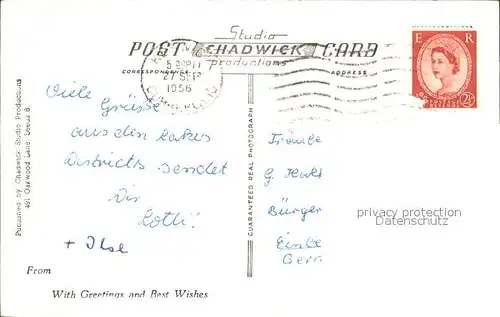 Studio
POST CHADWICK CARD
Productions
CORRESPONDENCE
ADDRESS
5 30 PM
27 SEP
1956
E R
2½
Viele Grüsse
aus den Lakes
Districts sendet
Dir
Lotti!
+ Ilse
From
With Greetings and Best Wishes
Published by Chadwick Studio Productions
491 Oakwood Lane, Leeds 8
GUARANTEED REAL PHOTOGRAPH
G.
Bürger
privacy protection
watermark